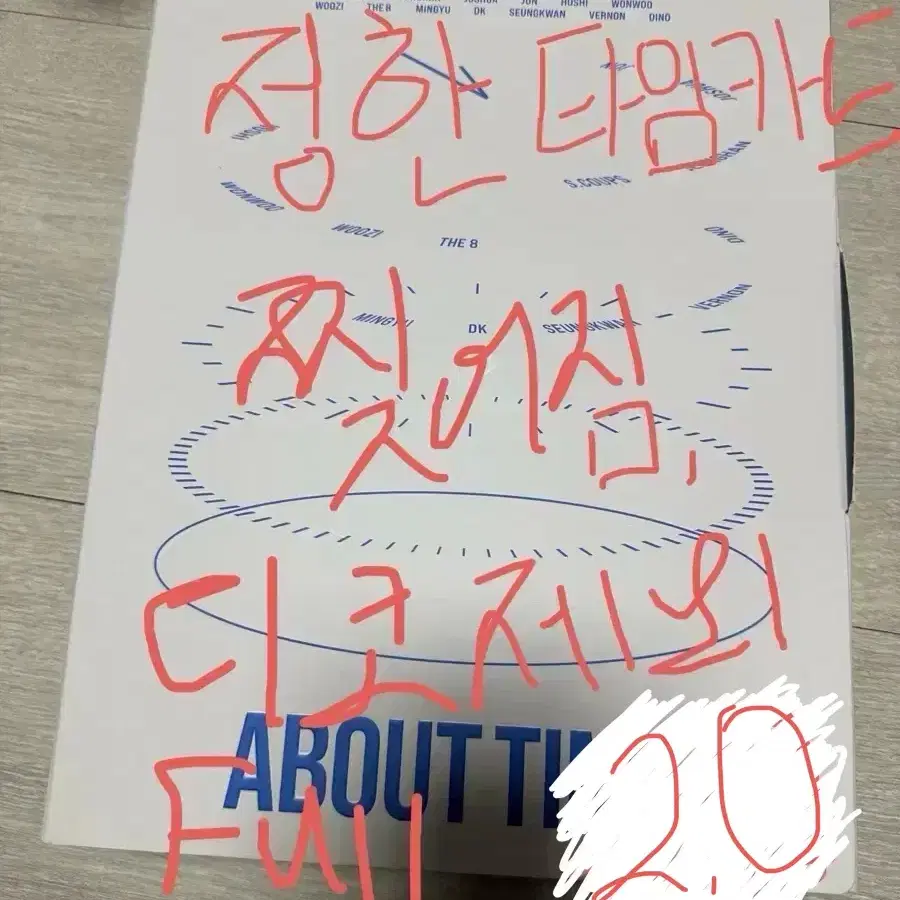 JOSHUA JUN HOSHI WONWOO
WOOZI THE 8 MINGYU DK SEUNGKWAN VERNON DINO
정한 타임카드
JUN
JOSHUA
HOSHI
WONWOO
S.COUPS
WOOZI
THE 8
DINO
찢어짐,
MINGYU
DK
SEUNGKWAN
VERNON
디코제외
ABOUT TIM
Full
2.0